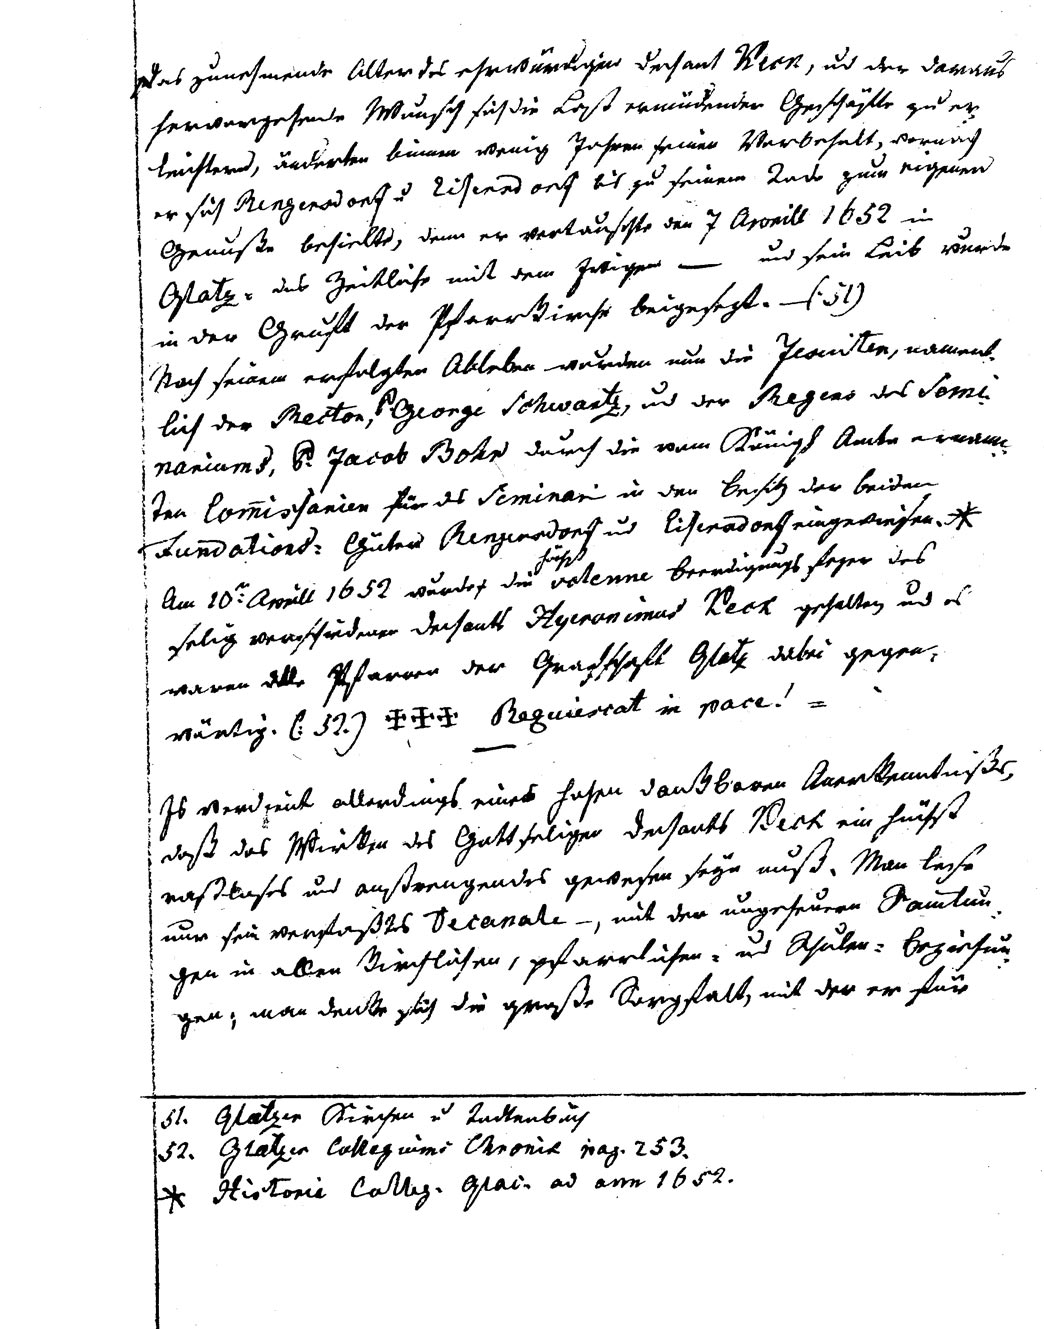 Das zunehmende Alter des ehrwürdigen Dechant Keck, ud der daraus
hervorgehende Wunsch sich die Last ermüdender Geschäfte zu er-
leichtern, änderten binnen wenig Jahren seinen Vorbehalt, wornach
er sich Rengersdorf u Eisersdorf bis zu seinem Tode zum eigenen
Genuße behielte, denn er vertauschte den 7 Aprill 1652 in
Glatz = das Zeitliche mit dem Ewigen — und sein Leib wurde
in der Gruft der Pfarrkirche beigesetzt. —(:51)
Nach seinem erfolgten Ableben wurden nun die Jesuiten, nament-
lich der Rector, P George Schwartz, ud der Regens des Semi-
nariums, P. Jacob Bohn durch die vom Königl Amte ernann-
ten Commissarien für das Seminari in den Besitz der beiden
Fundations= Güter Rengersdorf ud Eisersdorf eingewiesen. *
Am 10ten Aprill 1652 wurde die höchst solenne Beerdigungs feyer des
selig verschiedenen Dechants Hyeronimus Keck gehalten, ud es
waren alle Pfarrer der Grafschaft Glatz dabei gegen-
wärtig. (: 52.) ✠✠✠ Requiescat in pace! =
Es verdient allerdings eines hohen dankbaren Anerkenntnißes,
daß das Wirken des Gottseligen Dechants Keck ein höchst
rastloses und anstrengendes gewesen seyn muß. Man lese
nur sein verfaßtes Decanale —, mit den ungeheuern Samlun-
gen in allen kirchlichen, pfarrlichen = ud Schulen = Beziehun-
gen; man denke sich die große Sorgfalt, mit der er für
51. Glatzer Kirchen u Todtenbuch
52. Glatzer Collegiums Chronik pag. 253.
* Historie Colleg. Glac. ad ann 1652.